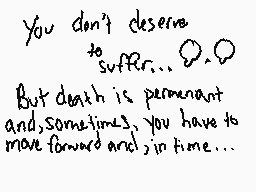 You don't deserve
to
suffer...
But death is permenant
and, sometimes, you have to
move forward and, in time...